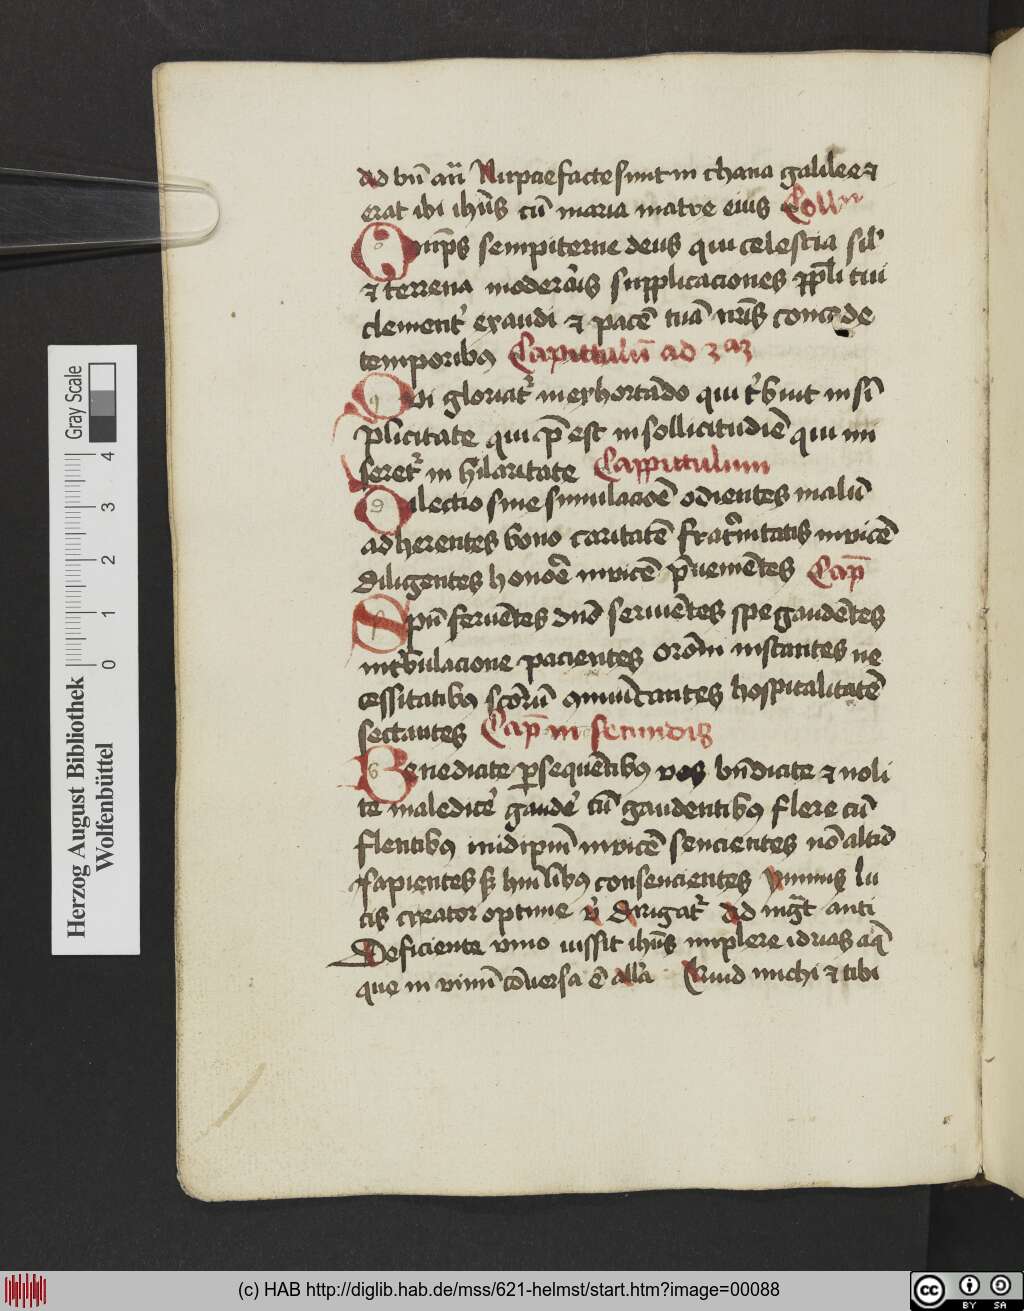 ad bn̄ an̄ Nupcie facte sunt in chana galilee et
erat ibi ihūs cū maria matre eius Coll
Om̄ps sempiterne deus qui celestia sil'
et terrena moderāis supplicaciones ppl̄i tui
clement' exaudi et pacē tuā nr̄is concede
temporibꝰ Capittulū ad 3am
Qui gloriat' in exhortādo qui t'buit in sī
plicitate qui p̄ est in sollicitudiē qui mi
seret' in hilaritate Cappittulum
Dilectio sine simulacōe odientes malū
adherentes bono caritatē frat'nitatis invicē
diligentes honoē invicē p̄uenientes Cap̄
Spū feruētes dnō seruiētes spe gaudētes
in t'bulacione pacientes orōni instantes ne
cessitatibꝰ scōrū ꝯmuīcantes hospitalitatē
sectantes Cap̄ in secundis
Benedicite p̱sequētibꝰ vos bn̄dicite et noli
te maledice' gaude' cū gaudentibꝰ flere cū
flentibꝰ id ip̄m invicē sencientes nō alta
sapientes s; humilibꝰ consencientes Ymnus lu
cis creator optime v̓ Dirigat' ad mgt̄ anti
Deficiente vino iussit ihūs implere idrias aq̄
que in vinū cōuersa ē all'a Quid michi et tibi
Herzog August Bibliothek
Wolfenbüttel
Gray Scale
0 1 2 3 4
(c) HAB http://diglib.hab.de/mss/621-helmst/start.htm?image=00088
cc BY SA